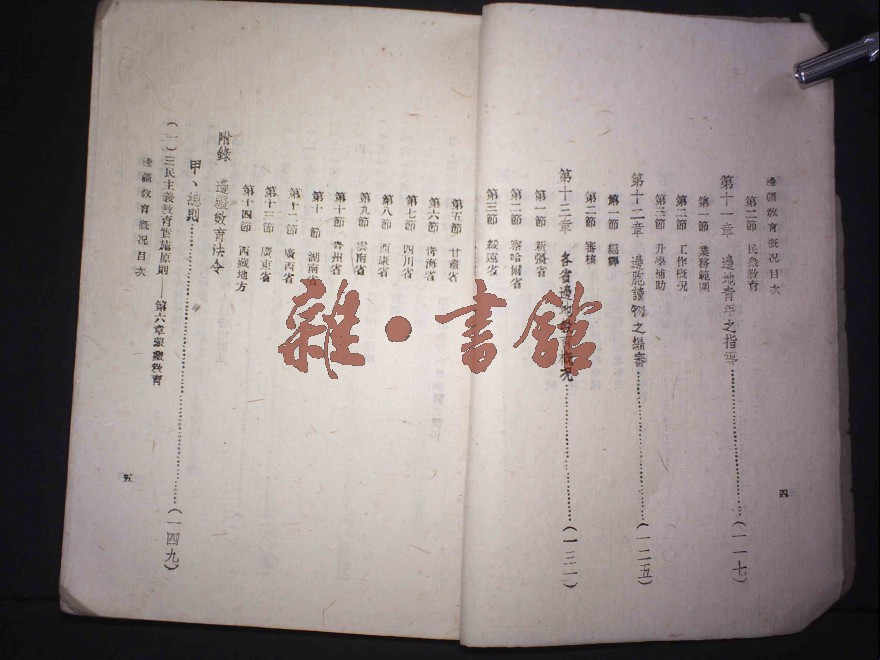 邊疆教育概況目次
第二節 民衆教育
第十一章 邊地青年之指導……(一一七)
第一節 業務範圍
第二節 工作概况
第三節 升學補助
第十二章 邊胞讀物之編審……(一二五)
第一節 編譯
第二節 審核
第十三章 各省邊地教育概况……(一三一)
第一節 新疆省
第二節 察哈爾省
第三節 綏遠省
四
第五節 甘肅省
第六節 青海省
第七節 四川省
第八節 西康省
第九節 雲南省
第十節 貴州省
第十一節 湖南省
第十二節 廣西省
第十三節 廣東省
第十四節 西藏地方
附錄 邊疆教育法令
甲、總則……(一四九)
(一)三民主義教育實施原則——第六章蒙藏教育
邊疆教育概況目次
五
雜·書館